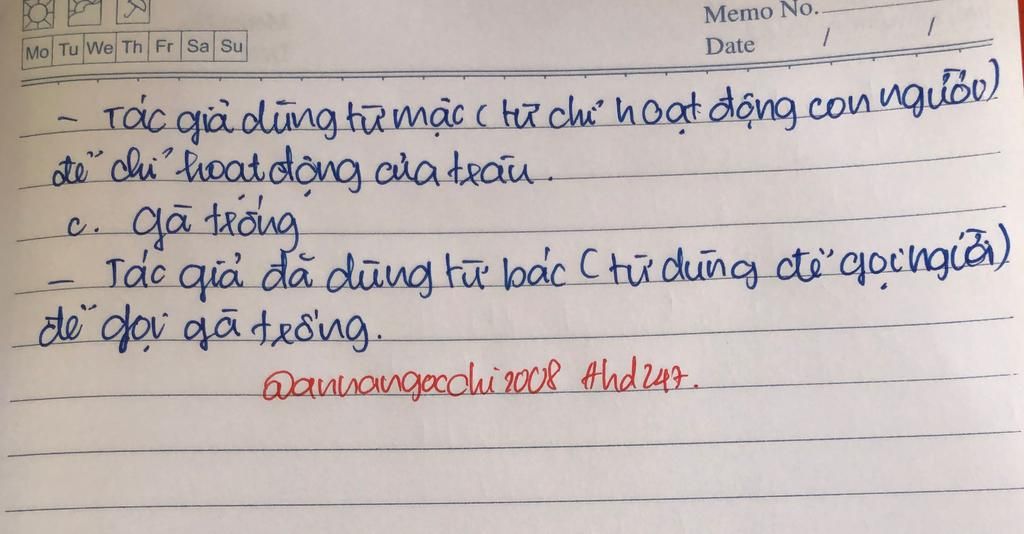 Memo No.
Mo Tu We Th Fr Sa Su
Date / /
- Tác giả dùng từ mặc (từ chỉ hoạt động con người)
để chỉ hoạt động của trâu.
c. gà trống
- Tác giả đã dùng từ bác (từ dùng để gọi người)
để gọi gà trống.
@annangocchi2008 #hd247.